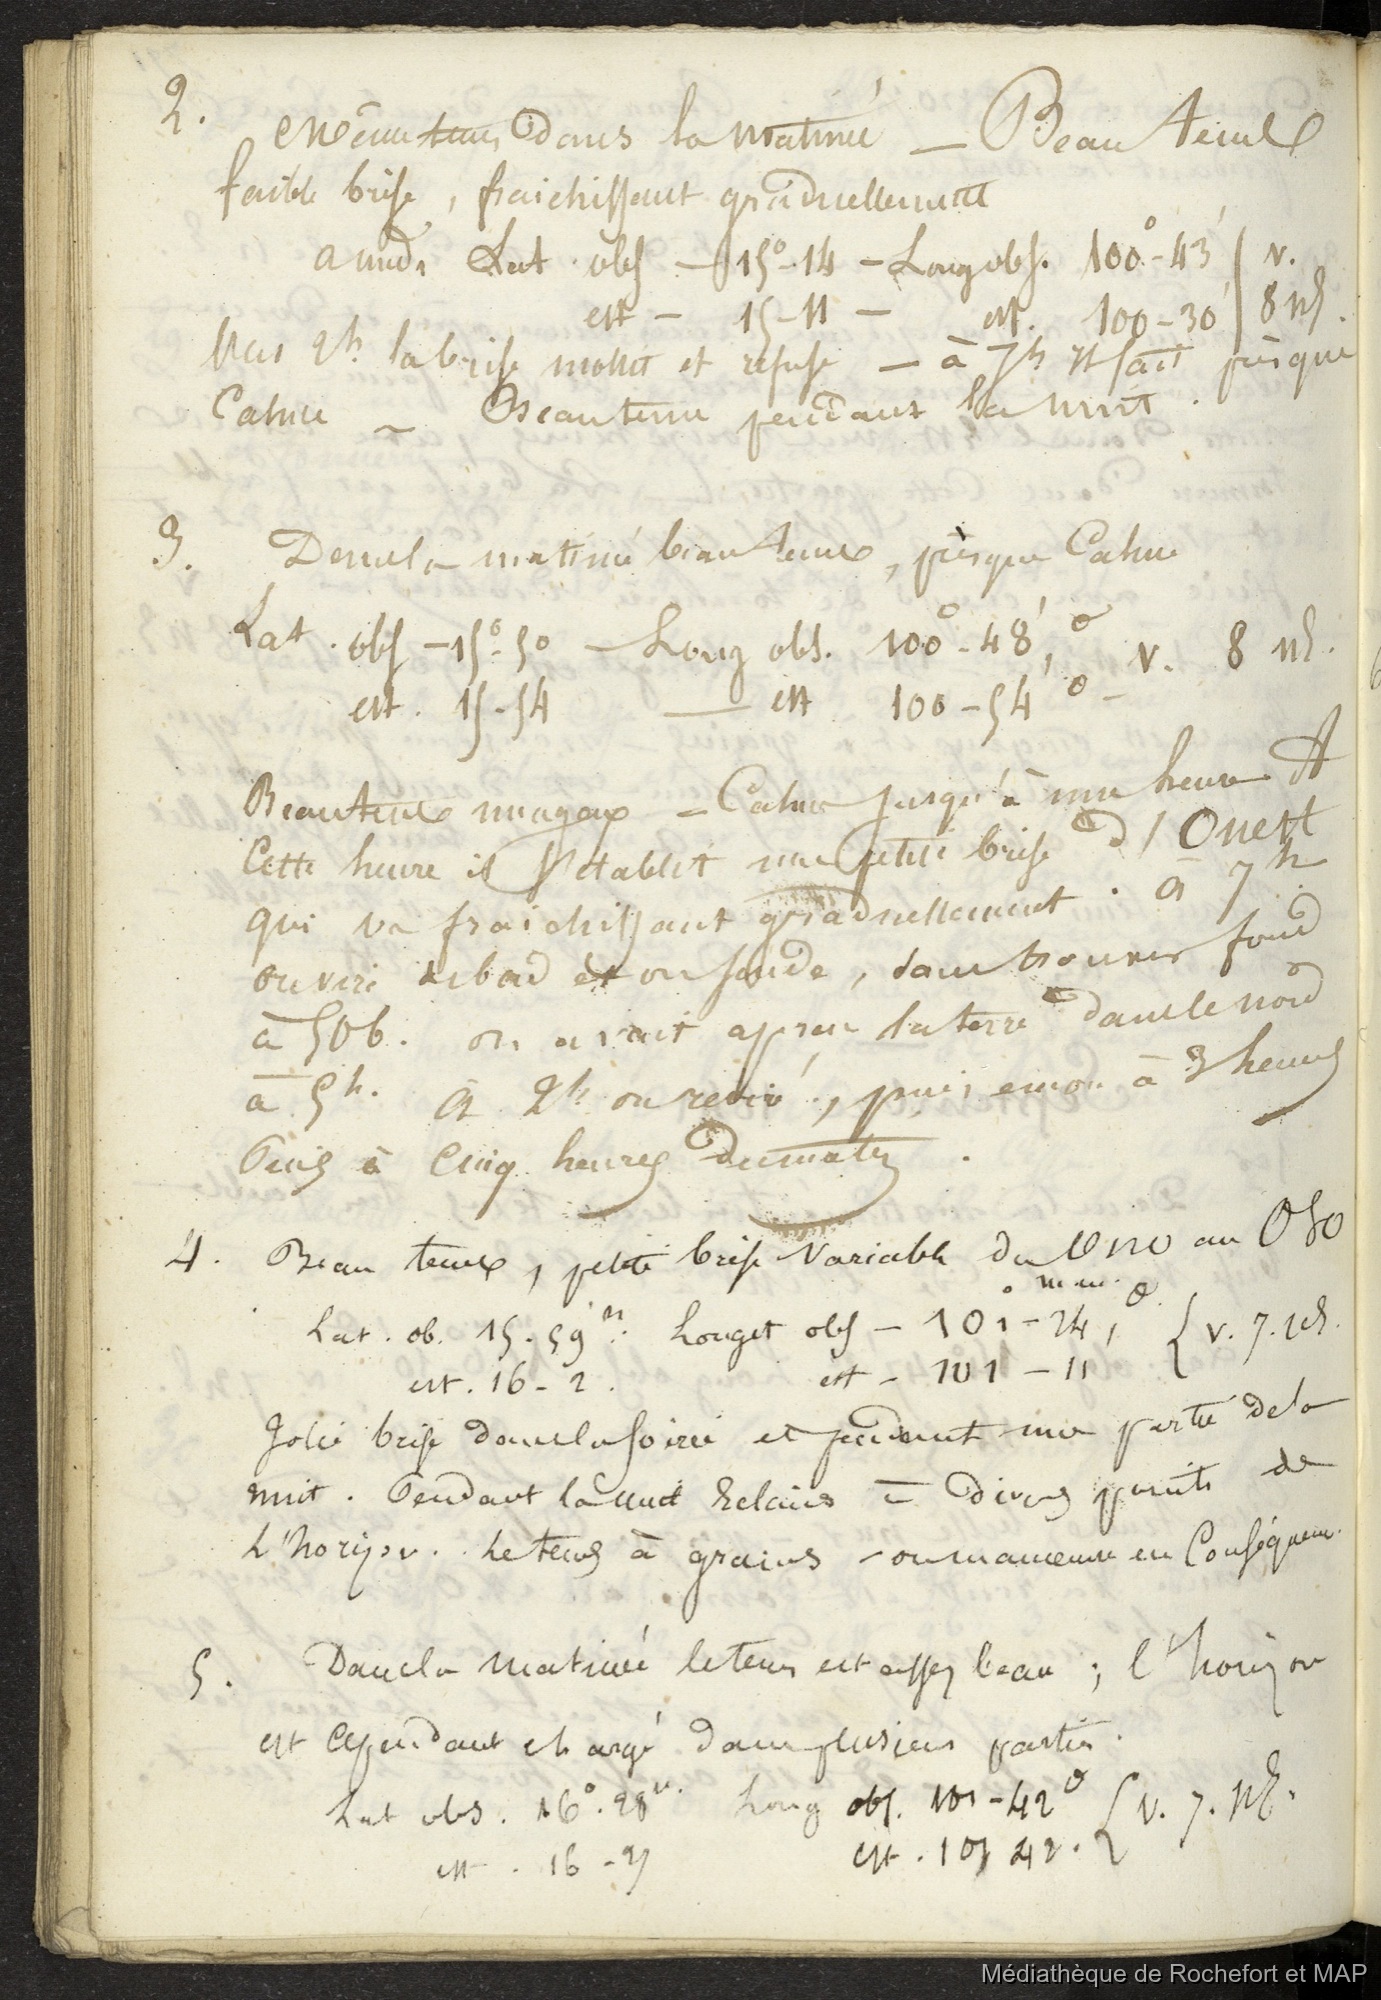 2.
même tems dans la matinée — Beau tems
faible brise, fraichissant graduellement
a midi Lat. obs — 15°-14 — Long obs. 100°-43' v.
est — 15-11 — est. 100-30' 8 nds.
Vers 2h. la brise mollit et refuse — à 7h il fait presque
Calme — Beau tems pendant la nuit.
3. Dans la matinée beau tems, presque Calme
Lat. obs — 15°-50 — Long obs. 100°-48', o v. 8 nds.
est. 15-54 — est 100-54' o —
Beau tems nuageux — Calme jusqu'à une heure A
Cette heure il s'établit une petite brise d'Ouest
qui va fraichissant graduellement. à 7h
on vire de bord et on sonde, sans trouver fond
à 50b. on avait aperçu la terre dans le nord
à 5h. à 2h on revire, puis encore à 3 heures
Puis à Cinq heures du matin.
4. Beau tems, petite brise variable du ONO au OSO
Lat. ob. 15-59' n. Longit obs — 101°-24', o. v. 7. nds.
est. 16-2. est — 101-11'
Jolie brise dans la soirée et pendant une partie de la
nuit. Pendant la nuit Eclairs à divers points de
L'horizon. Le tems à grains — on manoeuvre en Conséquence.
5. Dans la matinée le tems est assez beau; l'horizon
est Cependant chargé dans plusieurs parties.
Lat obs. 16°-28 n. Long obs. 101-42 o v. 7. nds.
est. 16-25 est. 101 42.
Médiathèque de Rochefort et MAP